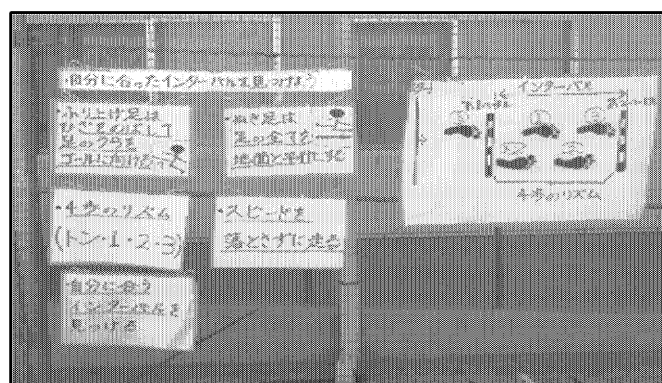 自分に合ったインターバルを見つけよう
・ふり上げ足は
ひざをのばして
足のうらを
ゴールに向ける
・ぬき足は
足の全てを
地面と平行にする
・4歩のリズム
(トン・1・2・3)
・スピードを
落とさずに走る
・自分に合う
インターバルを
見つける
インターバル
4歩のリズム